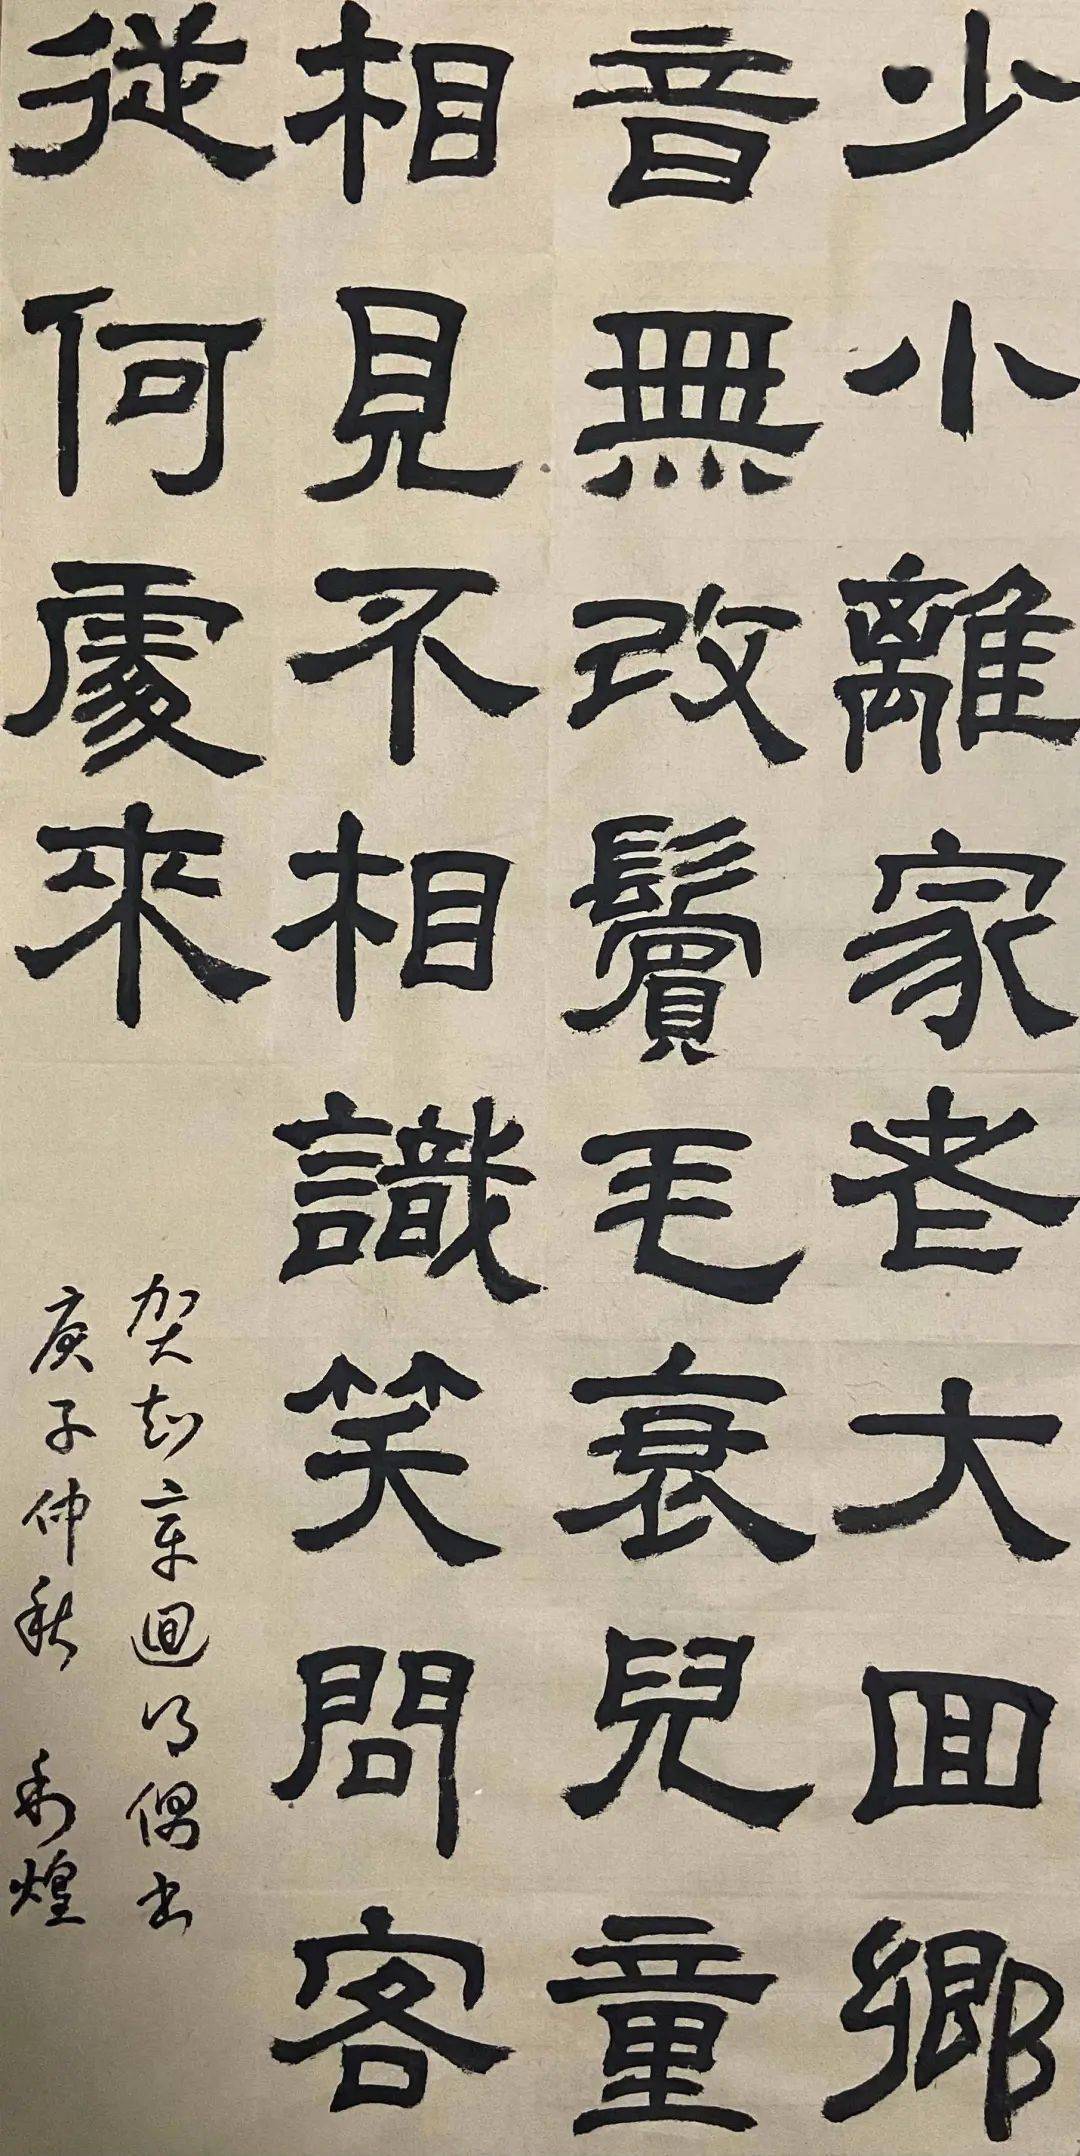 少小離家老大回鄉
音無改鬢毛衰兒童
相見不相識笑問客
從何處來
贺知章迴乡偶书
庚子仲秋 煌